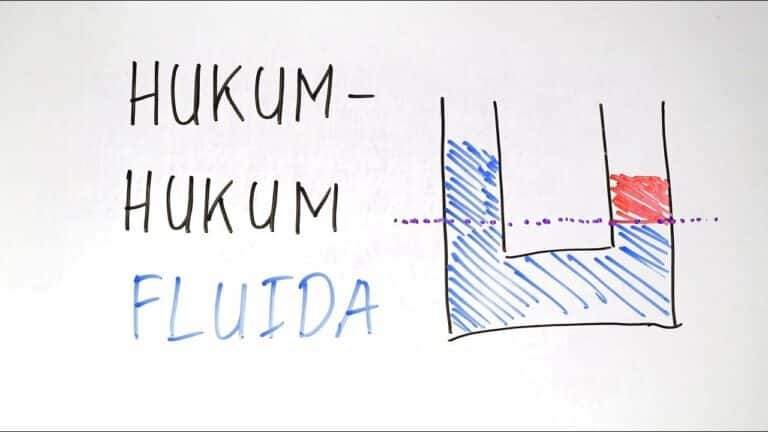 HUKUM-
HUKUM
FLUIDA